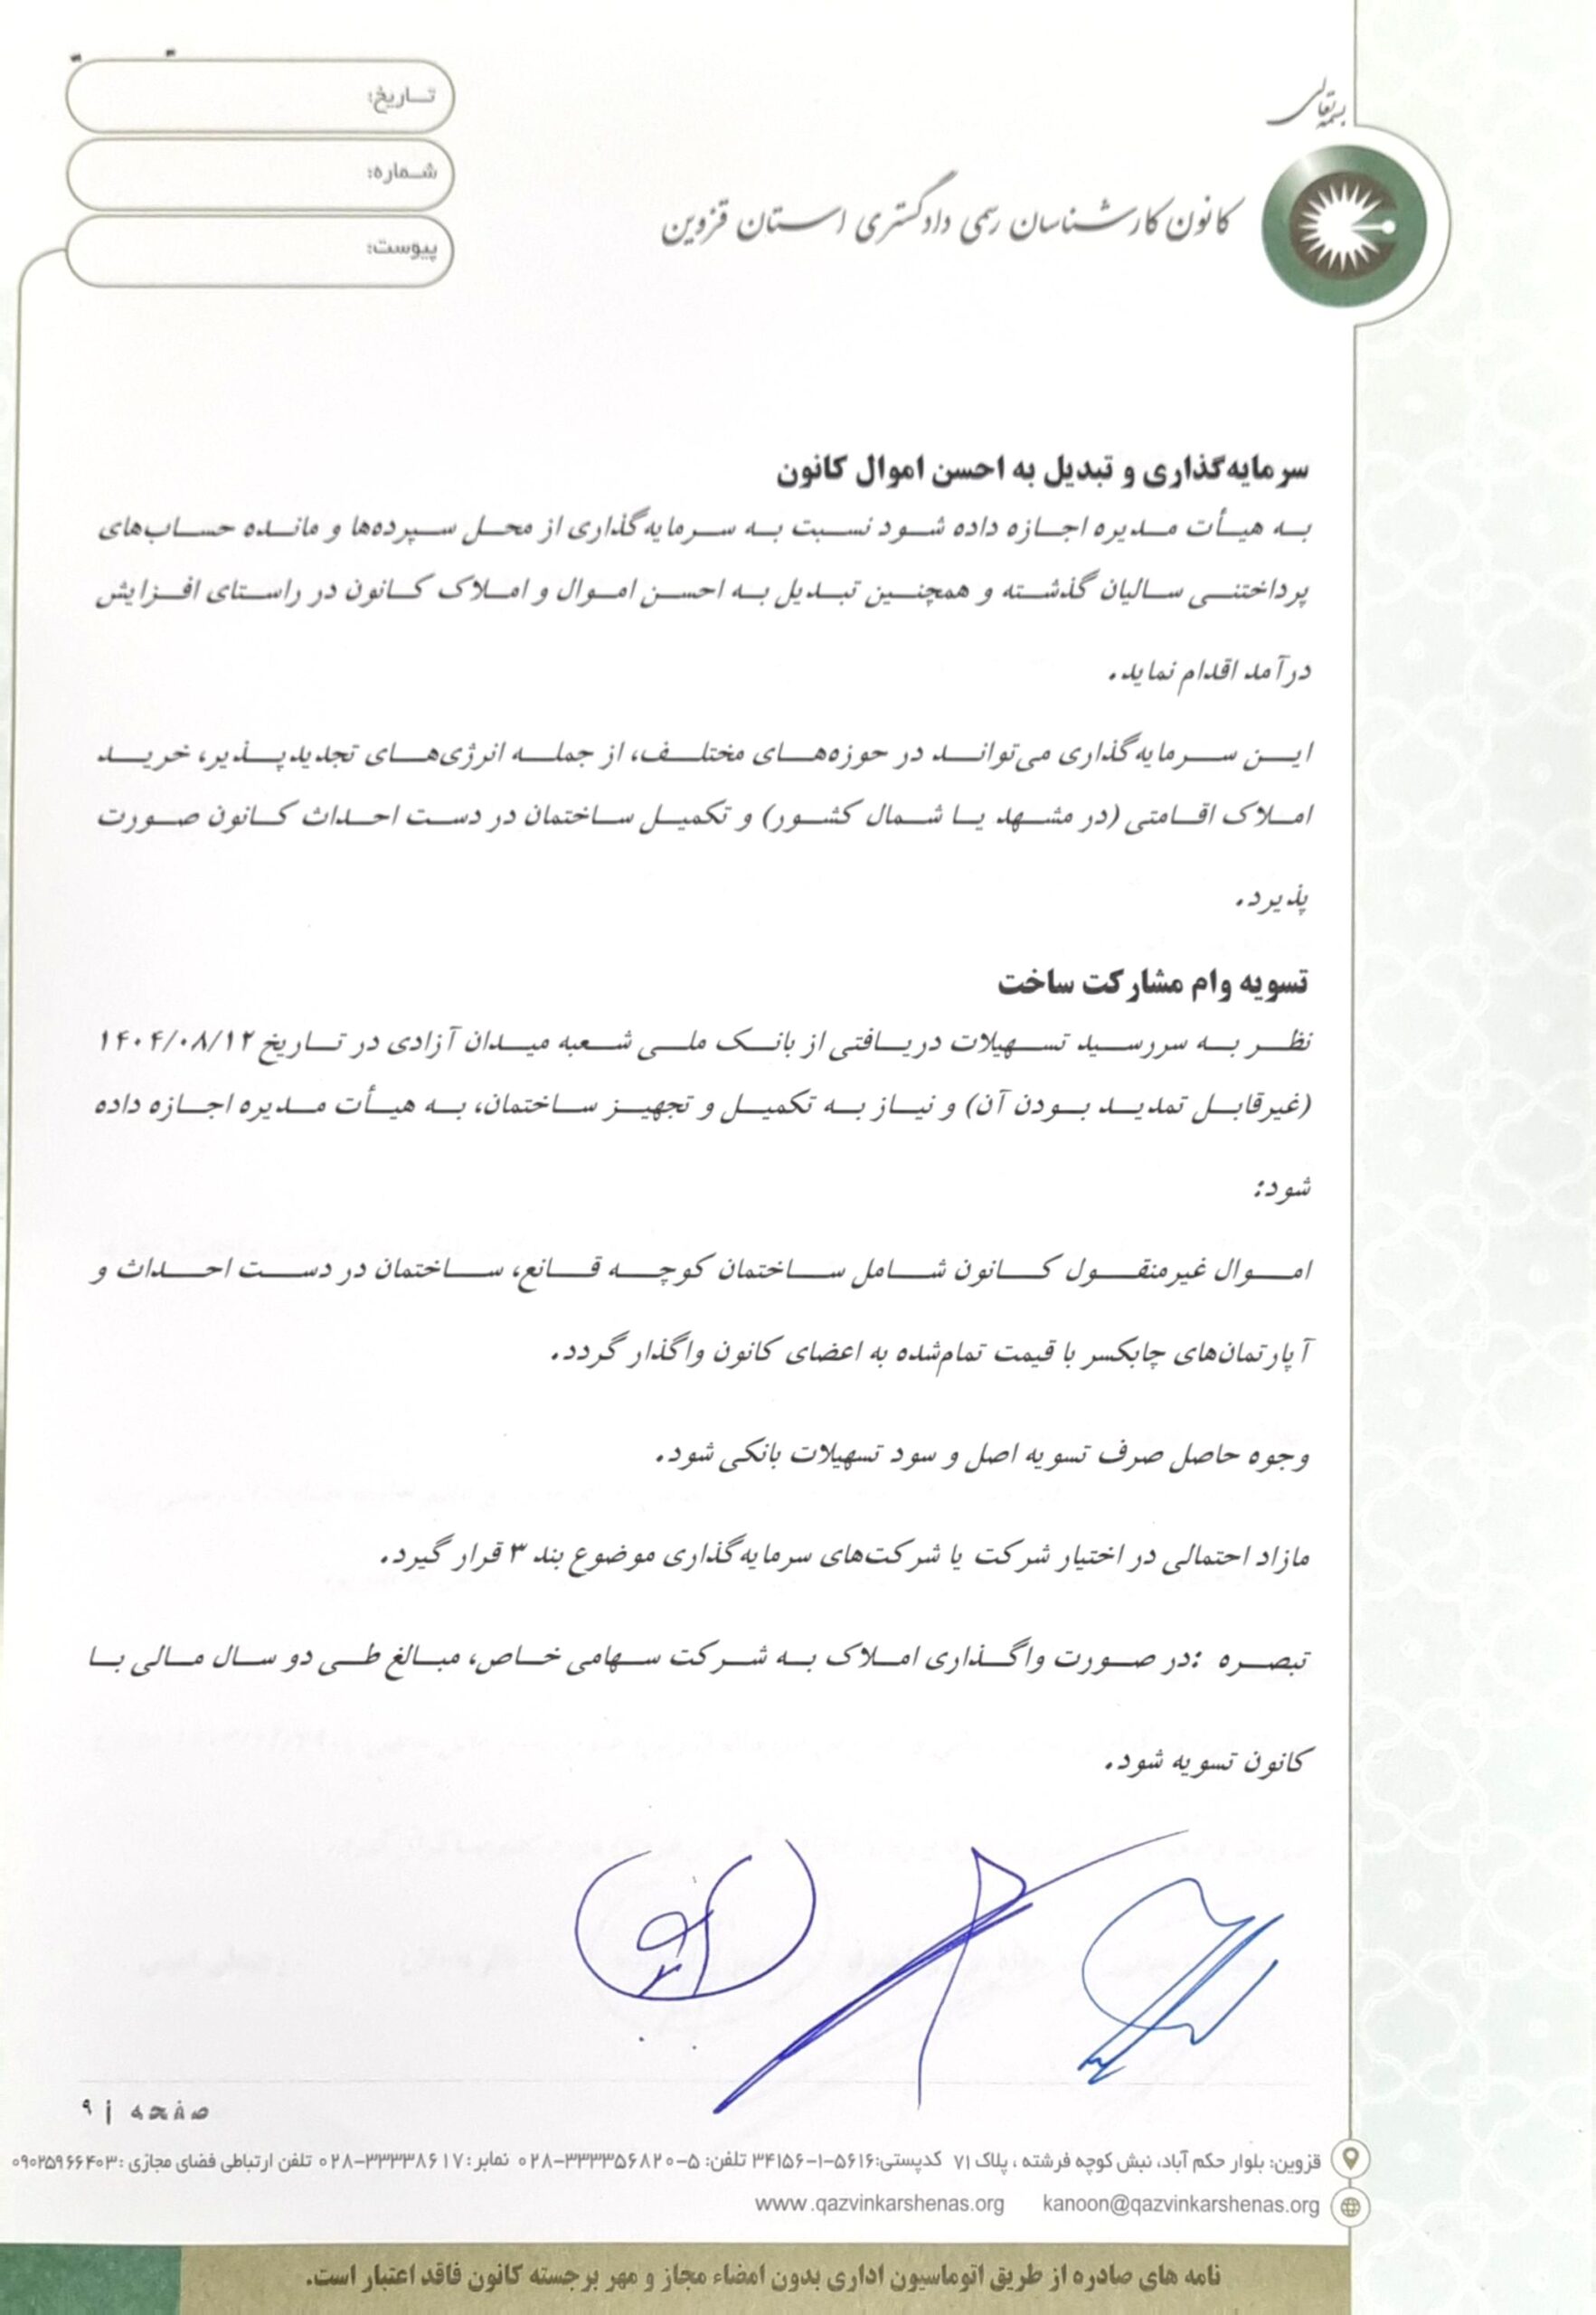 بسمه تعالی
تاریخ:
شماره:
پیوست:
کانون کارشناسان رسمی دادگستری استان قزوین
سرمایه‌گذاری و تبدیل به احسن اموال کانون
به هیأت مدیره اجازه داده شود نسبت به سرمایه‌گذاری از محل سپرده‌ها و مانده حساب‌های
پرداختنی سالیان گذشته و همچنین تبدیل به احسن اموال و املاک کانون در راستای افزایش
درآمد اقدام نماید.
این سرمایه‌گذاری می‌تواند در حوزه‌های مختلف، از جمله انرژی‌های تجدیدپذیر، خرید
املاک اقامتی (در مشهد یا شمال کشور) و تکمیل ساختمان در دست احداث کانون صورت
پذیرد.
تسویه وام مشارکت ساخت
نظر به سررسید تسهیلات دریافتی از بانک ملی شعبه میدان آزادی در تاریخ ۱۴۰۴/۰۸/۱۲
(غیرقابل تمدید بودن آن) و نیاز به تکمیل و تجهیز ساختمان، به هیأت مدیره اجازه داده
شود:
اموال غیرمنقول کانون شامل ساختمان کوچه قانع، ساختمان در دست احداث و
آپارتمان‌های چابکسر با قیمت تمام‌شده به اعضای کانون واگذار گردد.
وجوه حاصل صرف تسویه اصل و سود تسهیلات بانکی شود.
مازاد احتمالی در اختیار شرکت یا شرکت‌های سرمایه‌گذاری موضوع بند ۳ قرار گیرد.
تبصره :در صورت واگذاری املاک به شرکت سهامی خاص، مبالغ طی دو سال مالی با
کانون تسویه شود.
صفحه | ۹
قزوین: بلوار حکم آباد، نبش کوچه فرشته ، پلاک ۷۱ کدپستی:۵۶۱۶-۱-۳۴۱۵۶ تلفن: ۵-۳۳۳۳۵۶۸۲۰-۰۲۸ نمابر: ۳۳۳۳۸۶۱۷-۰۲۸ تلفن ارتباطی فضای مجازی :۰۹۰۲۵۹۶۶۴۰۳
www.qazvinkarshenas.org kanoon@qazvinkarshenas.org
نامه های صادره از طریق اتوماسیون اداری بدون امضاء مجاز و مهر برجسته کانون فاقد اعتبار است.